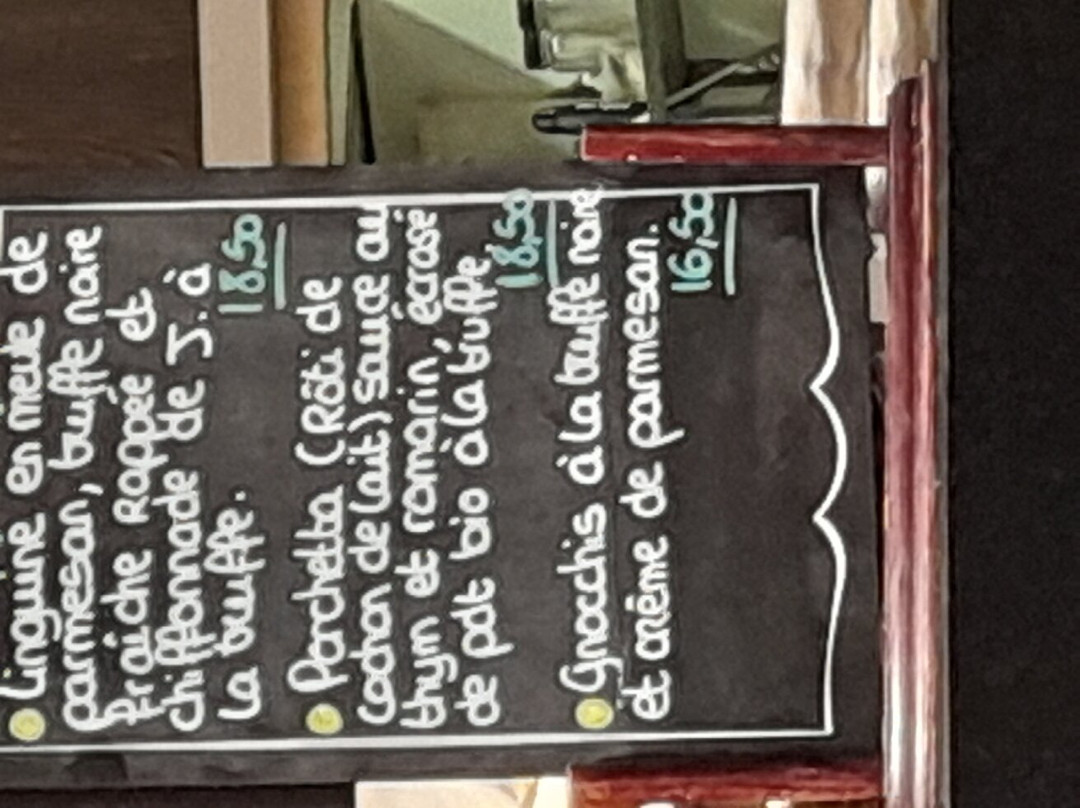 Linguine en meule de
parmesan, truffe noire
fraîche rappée et
chiffonnade de J. à
la truffe.
18,50
Porchetta (Rôti de
cochon de lait) sauce au
thym et romarin, écrasé
de pdt bio à la truffe
18,50
Gnocchis à la truffe noire
et crème de parmesan.
16,50